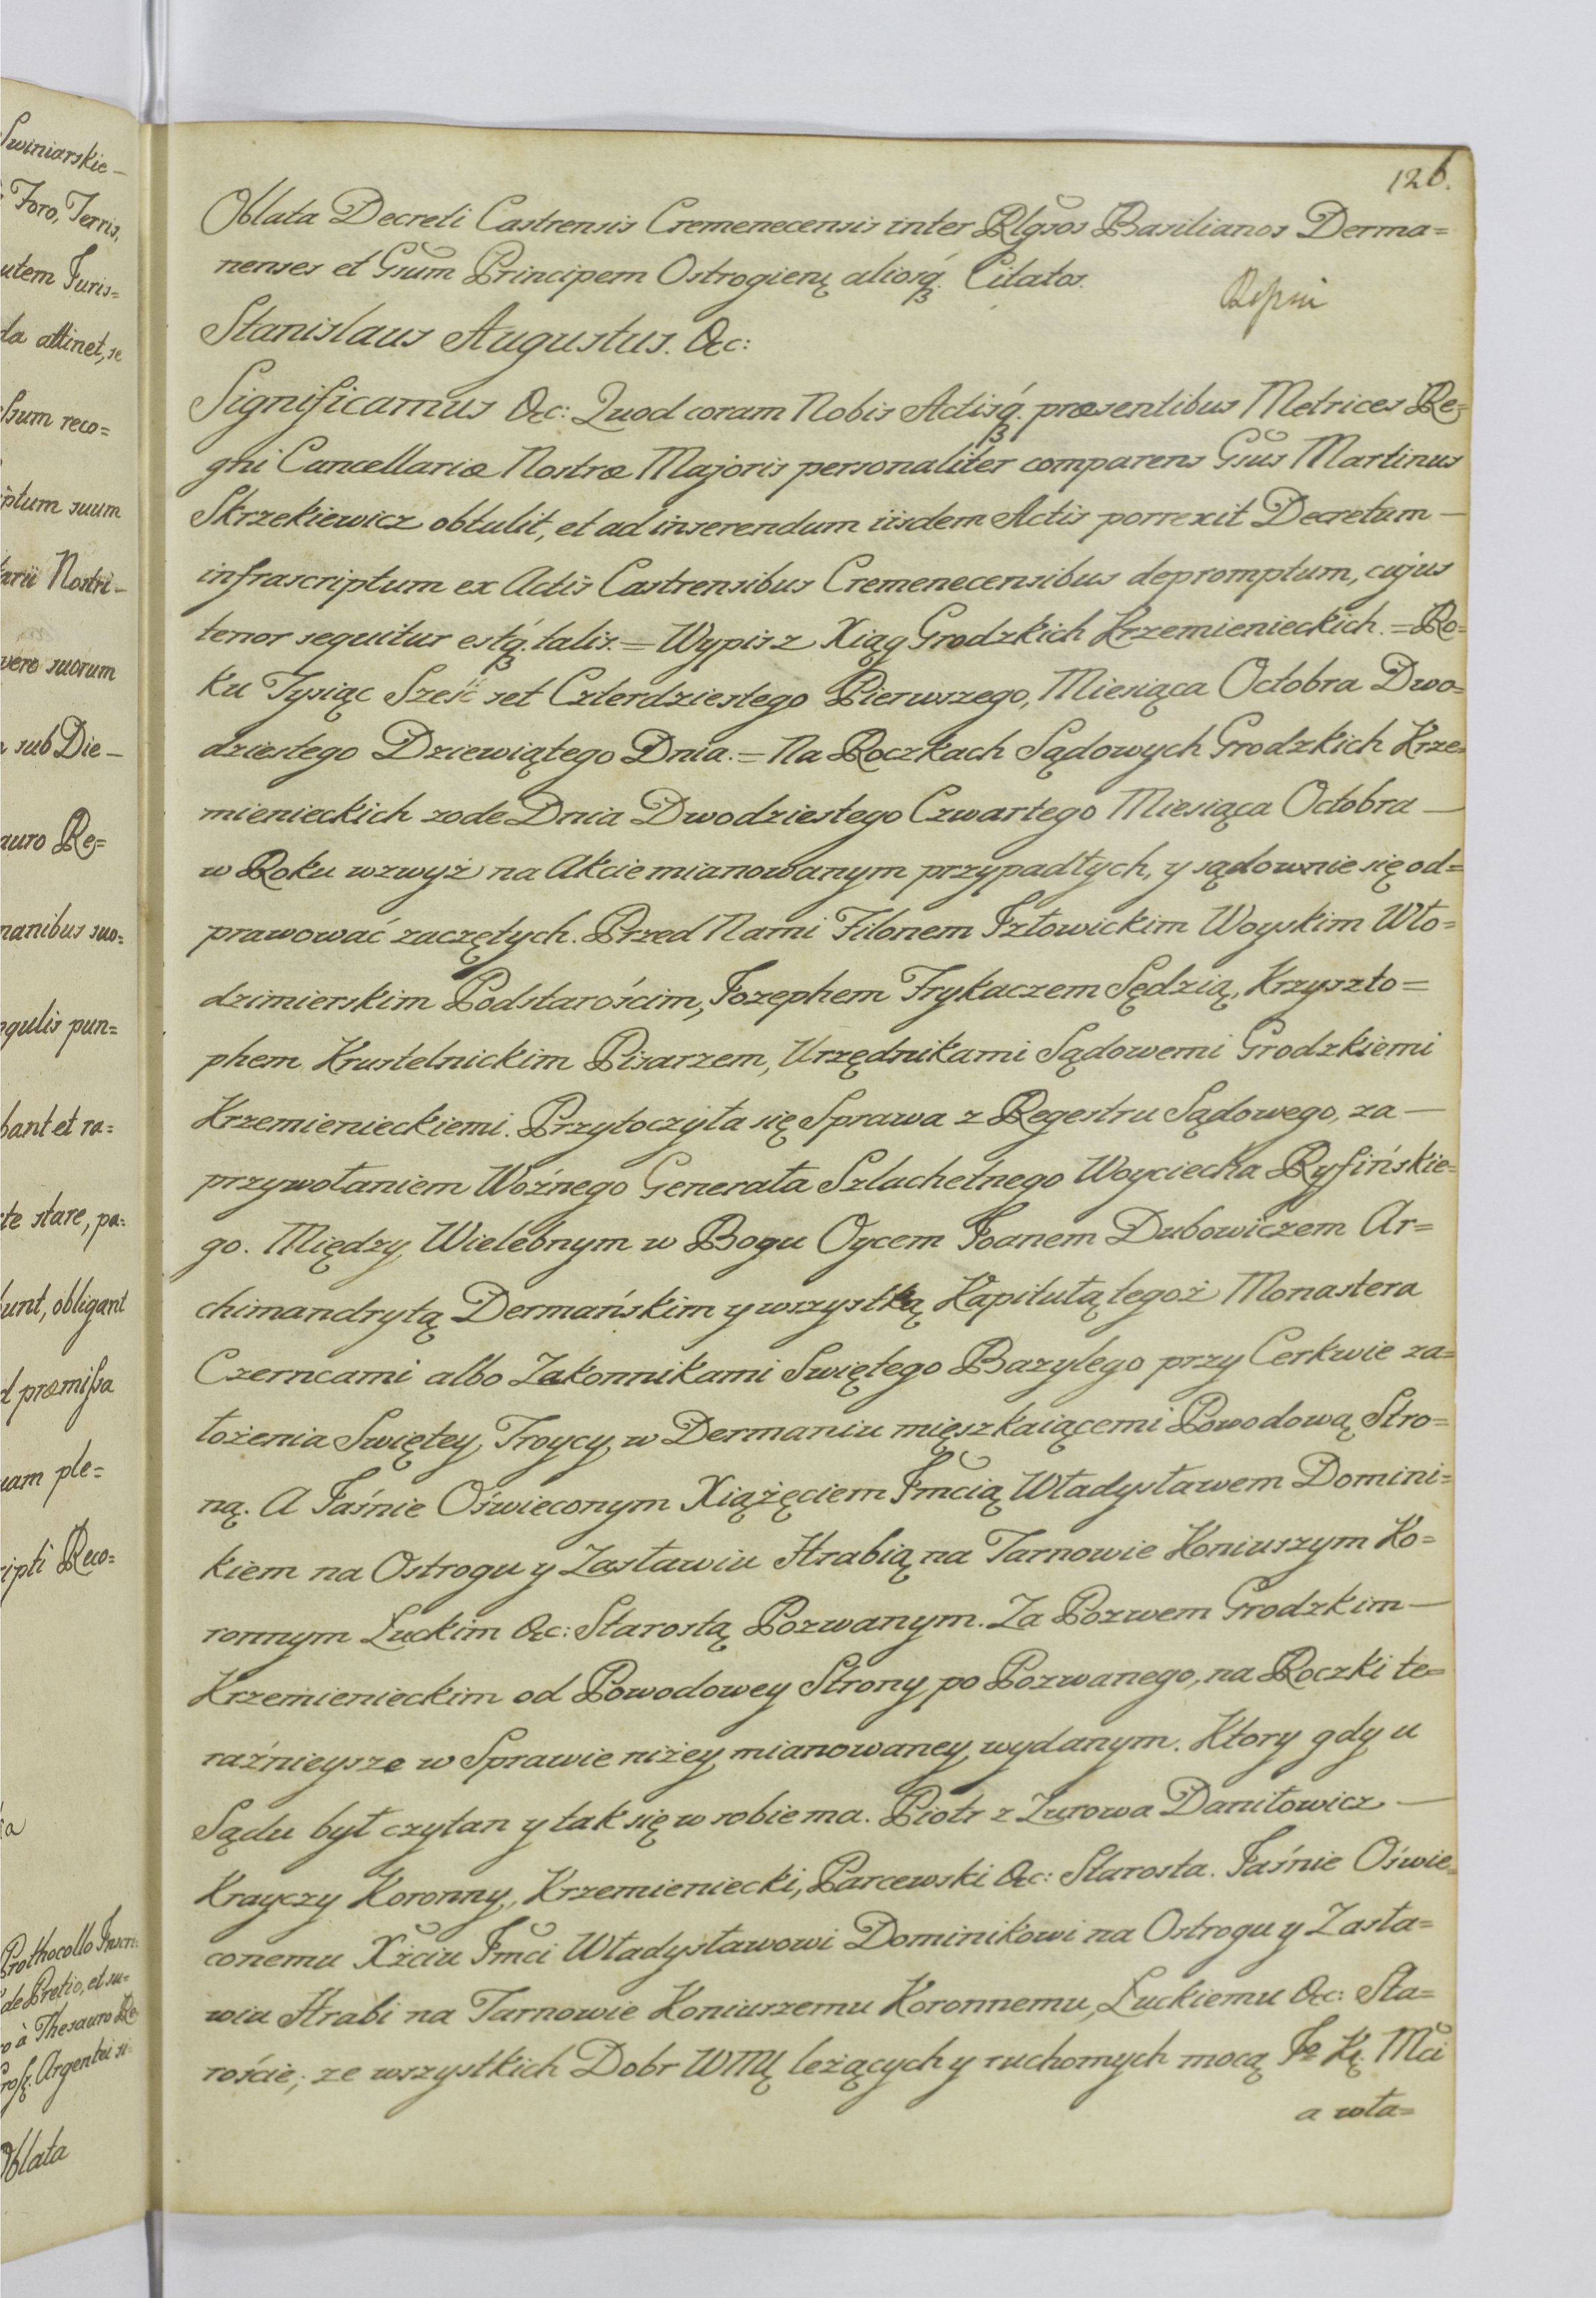 Swiniarskie-
Foro, Terris,
utem Juris=
da attinet, se
sum reco=
iptum suum
arii Nostri-
vero suorum
sub Die-
auro Re=
manibus suo=
ngulis pun=
bant et ra=
te stare, pa=
bunt, obligant
d præmissa
uam ple=
ripti Reco=
Prothocollo
de Pretio, et su=
à Thesauro Re
Argentei
Oblata
126.
Oblata Decreti Castrensis Cremenecensis inter Rlgsos Basilianos Derma=
nenses et Gsum Principem Ostrogien: aliosq. Citatos.
Stanislaus Augustus. &c:
Significamus &c: Quod coram Nobis Actisq. præsentibus Metrices Re=
gni Cancellariæ Nostræ Majoris personaliter comparens Gsus Martinus
Skrzekiewicz obtulit, et ad inserendum iisdem Actis porrexit Decretum -
infrascriptum ex Actis Castrensibus Cremenecensibus depromptum, cujus
tenor sequitur estq. talis. = Wypis z Xiąg Grodzkich Krzemienieckich. = Ro=
ku Tysiąc Sześć set Czterdziestego Pierwszego, Miesiąca Octobra Dwo=
dziestego Dziewiątego Dnia. = Na Roczkach Sądowych Grodzkich Krze=
mienieckich zode Dnia Dwodziestego Czwartego Miesiąca Octobra -
w Roku wzwyż na Akcie mianowanym przypadłych, y sądownie się od=
prawować zaczętych. Przed Nami Filonem Jełowickim Woyskim Wło=
dzimierskim Podstarościm, Jozephem Frykaczem Sędzią, Krzyszto=
phem Krustelnickim Pisarzem, Urzędnikami Sądowemi Grodzkiemi
Krzemienieckiemi. Przytoczyła się Sprawa z Regestru Sądowego, za -
przywołaniem Woźnego Generała Szlachetnego Woyciecha Ryfińskie=
go. Między Wielebnym w Bogu Oycem Joanem Dubowiczem Ar=
chimandrytą Dermańskim y wszystką Kapitułą tegoż Monastera
Czerncami albo Zakonnikami Swiętego Bazylego przy Cerkwie za=
łożenia Swiętey Troycy w Dermaniu mięszkaiącemi Powodową Stro=
ną. A Jaśnie Oświeconym Xiążęciem Jmcią Władysławem Domini=
kiem na Ostrogu y Zasławiu Hrabią na Tarnowie Koniuszym Ko=
ronnym Łuckim &c: Starostą Pozwanym. Za Pozwem Grodzkim -
Krzemienieckim od Powodowey Strony po Pozwanego, na Roczki te=
raźnieysze w Sprawie niżey mianowaney wydanym. Ktory gdy u
Sądu był czytan y tak się w sobie ma. Piotr z Zurowa Daniłowicz -
Krayczy Koronny, Krzemieniecki, Parcewski &c: Starosta. Jaśnie Oświe=
conemu Xżciu Jmci Władysławowi Dominikowi na Ostrogu y Zasła=
wiu Hrabi na Tarnowie Koniuszemu Koronnemu, Łuckiemu &c: Sta=
roście, ze wszystkich Dobr WMĘ leżących y ruchomych mocą Jo Kj. Mci
a wła=